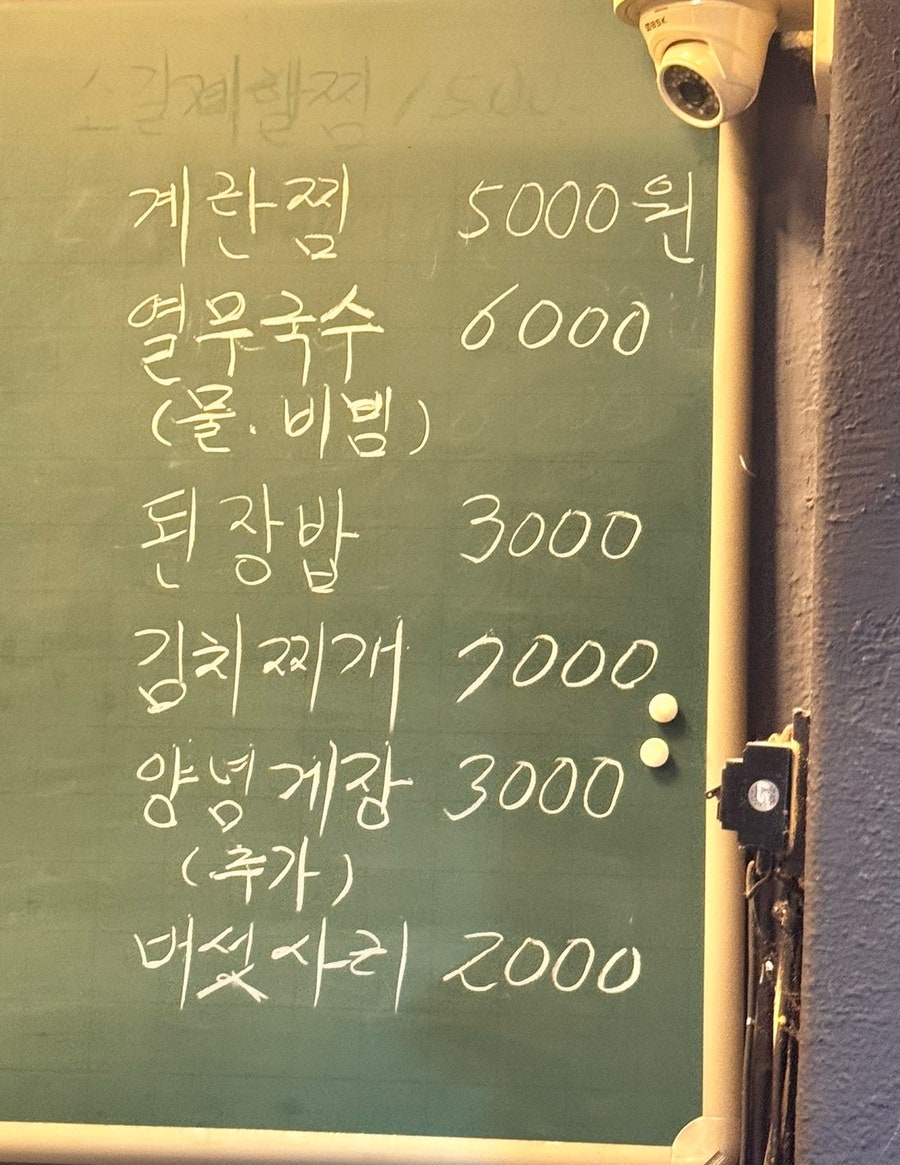 계란찜 5000원
열무국수 6000
(물. 비빔)
된장밥 3000
김치찌개 7000
양념게장 3000
(추가)
버섯사리 2000